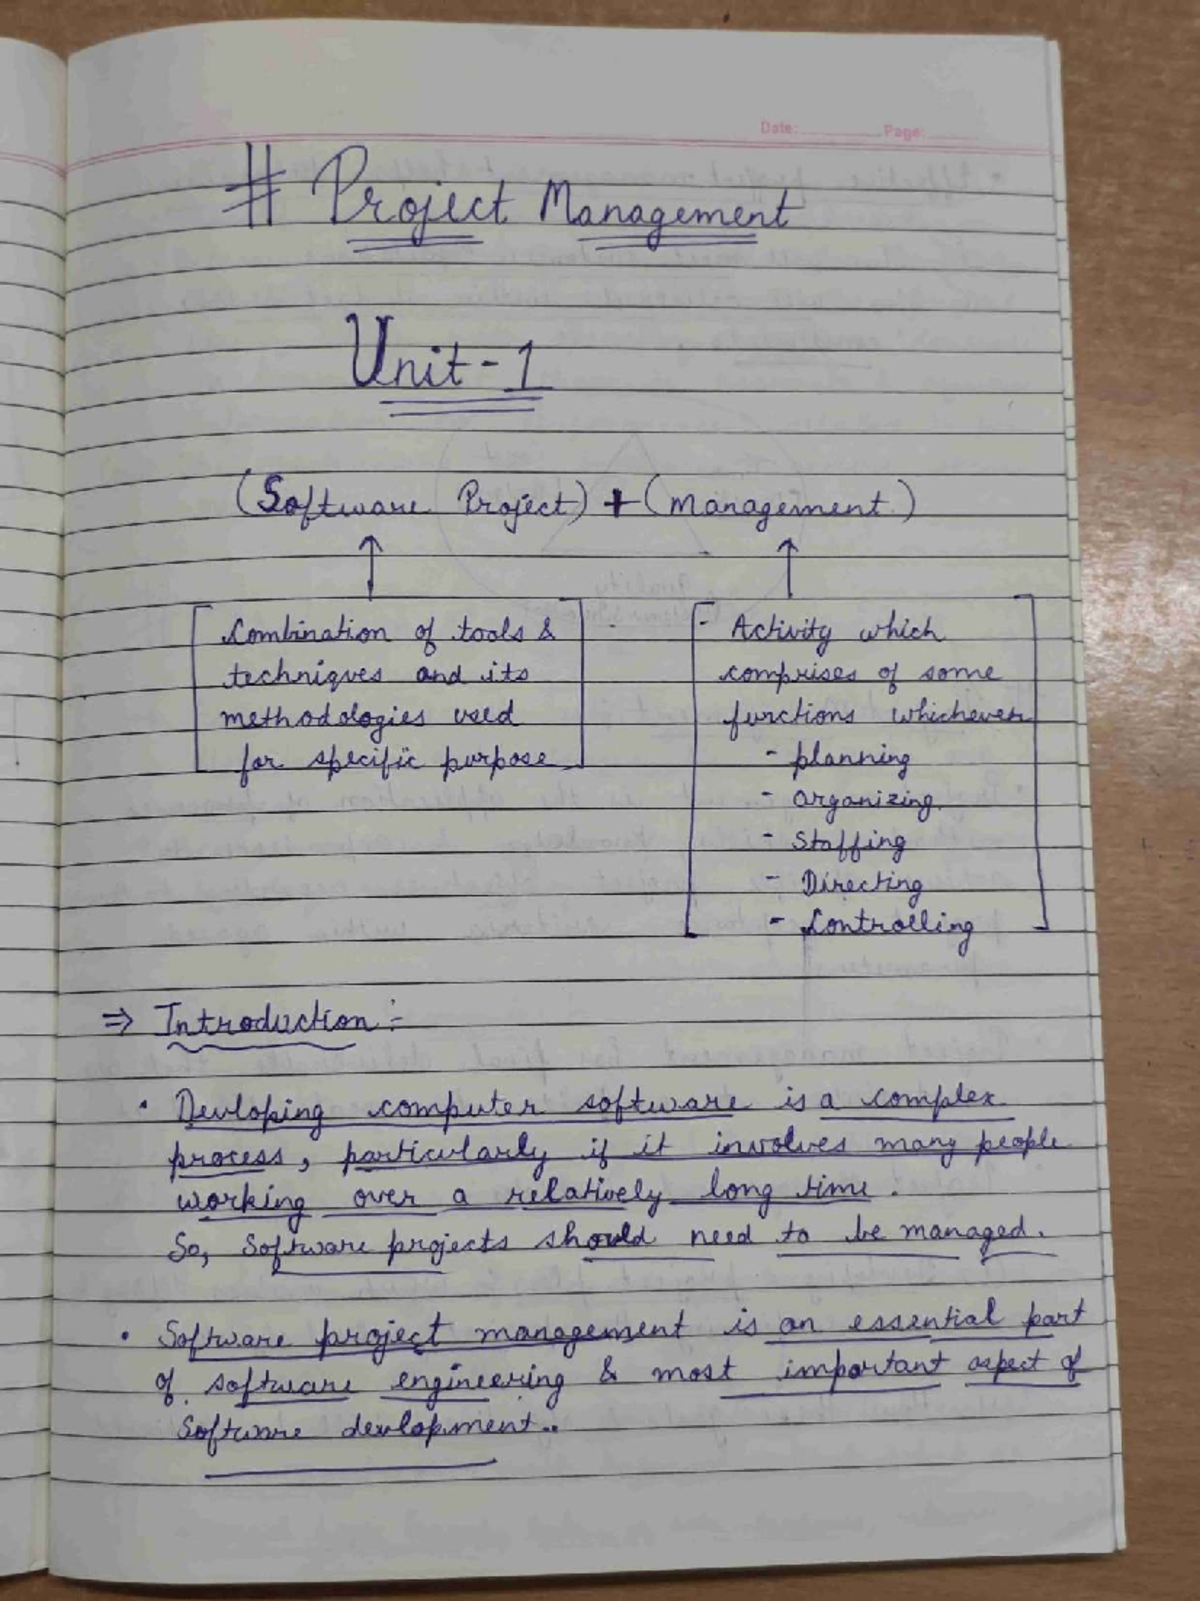 Date: Page:
# Project Management
Unit - 1
(Software Project) + (Management)
Combination of tools &
techniques and its
methodologies used
for specific purpose
- Activity which
comprises of some
functions whichever
- planning
- organizing.
- Staffing
- Directing
- Controlling
⇒ Introduction :-
• Devloping computer software is a complex
process, particularly if it involves many people
working over a relatively long time.
So, Software projects should need to be managed.
• Software project management is an essential part
of software engineering & most important aspect of
Software devlopment..